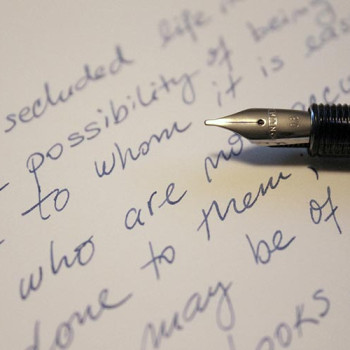 secluded life in
possibility of being
to whom it is eas
who are not accu
done to them;
may be of
books